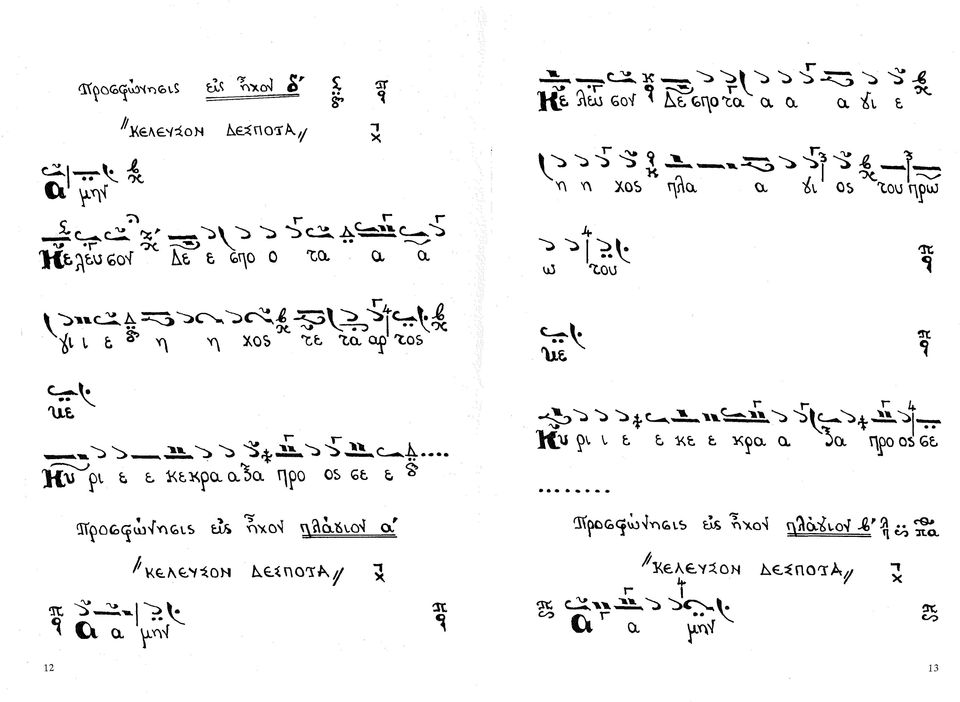 Προσφώνησις εἰς ἦχον δʹ
"ΚΕΛΕΥΣΟΝ ΔΕΣΠΟΤΑ"
Α μην
Κε λευ σον Δε ε σπο ο τα α α
γι ι ε η η χος τε τα αρ τος
κε
Κυ ρι ε ε κε κρα α ξα προ ος σε ε
Προσφώνησις εἰς ἦχον πλάγιον αʹ
"ΚΕΛΕΥΣΟΝ ΔΕΣΠΟΤΑ"
Α α μην
12
Κε λευ σον Δε σπο τα α α α γι ε
η η χος πλα α γι ος του πρω
ω του
κε
Κυ ρι ι ε ε κε ε κρα α ξα προ ος σε
.........
Προσφώνησις εἰς ἦχον πλάγιον βʹ
"ΚΕΛΕΥΣΟΝ ΔΕΣΠΟΤΑ"
Α α μην
13